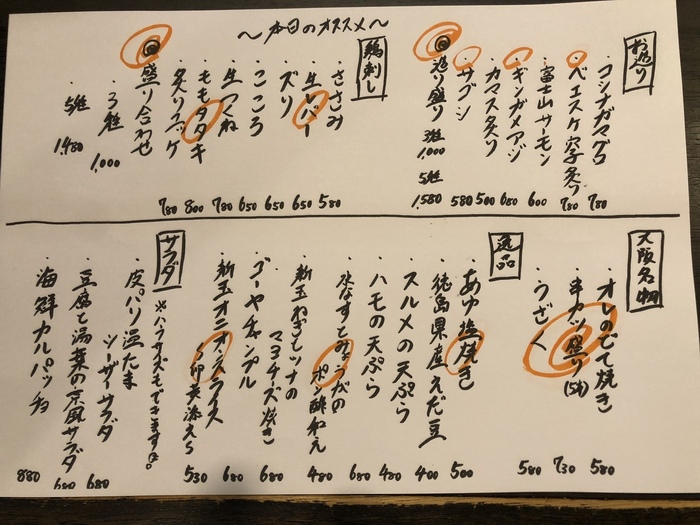 〜本日のオススメ〜
お造り
・コシナガマグロ 780
・ベエスケ穴子炙り 780
・富士山サーモン 600
・キンガメアジ 680
・カマス炙り 500
・サゴシ 580
・造り盛り 3種 1,000
5種 1,580
鶏刺し
・ささみ 580
・生レバー 650
・ズリ 650
・こころ 650
・生つくね 780
・モモタタキ 800
・炙りユッケ 780
・盛り合わせ
・3種 1,000
・5種 1,480
大阪名物
・オレのどて焼き 580
・串カツ盛り(5本) 730
・うざく 580
逸品
・あゆ塩焼き 500
・徳島県産えだ豆 400
・スルメの天ぷら 480
・ハモの天ぷら 680
・水なすとみょうがの
ポン酢和え 480
・新玉ねぎとツナの
マヨチーズ焼き 680
・ゴーヤチャンプル 680
・新玉オニオンスライス
〜卵黄添え〜 530
サラダ
※ハーフサイズもできますよ。
・皮パリ温たま
シーザーサラダ 680
・豆腐と湯葉の京風サラダ 680
・海鮮カルパッチョ 880